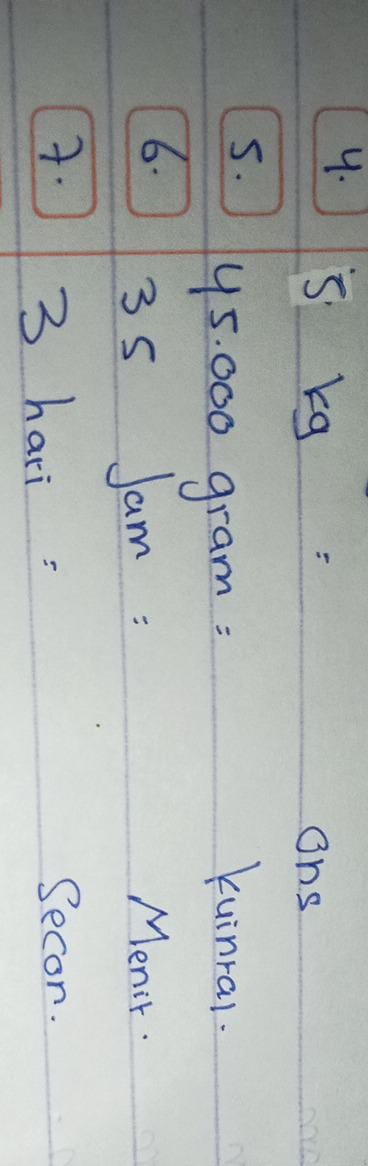 4. 5 kg = Ons
5. 45.000 gram = kuintal.
6. 35 Jam = Menit.
7. 3 hari = Secon.